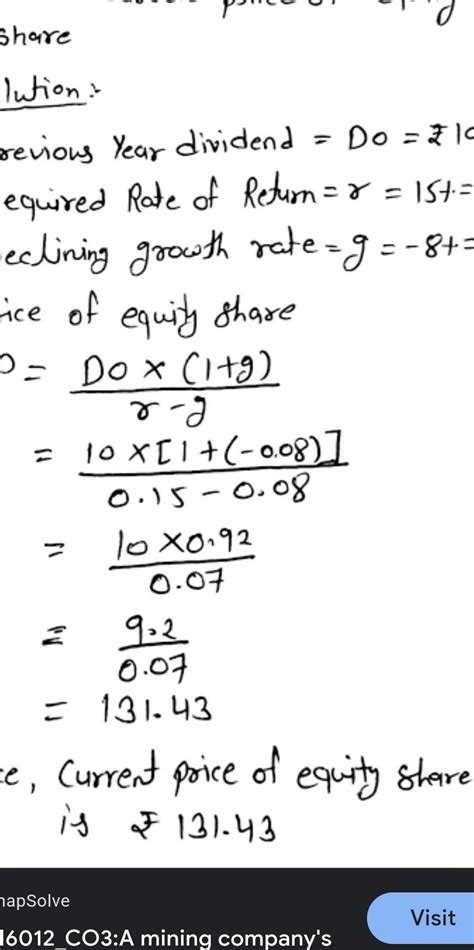 price of equity
share
lution :-
revious Year dividend = D0 = ₹10
equired Rate of Return = r = 15% =
eclining growth rate = g = -8% =
ice of equity share
= D0 × (1+g)
r - g
= 10 × [1 + (-0.08)]
0.15 - 0.08
= 10 × 0.92
0.07
= 9.2
0.07
= 131.43
ce, Current price of equity share
is ₹ 131.43
napSolve
Visit
16012_CO3:A mining company's